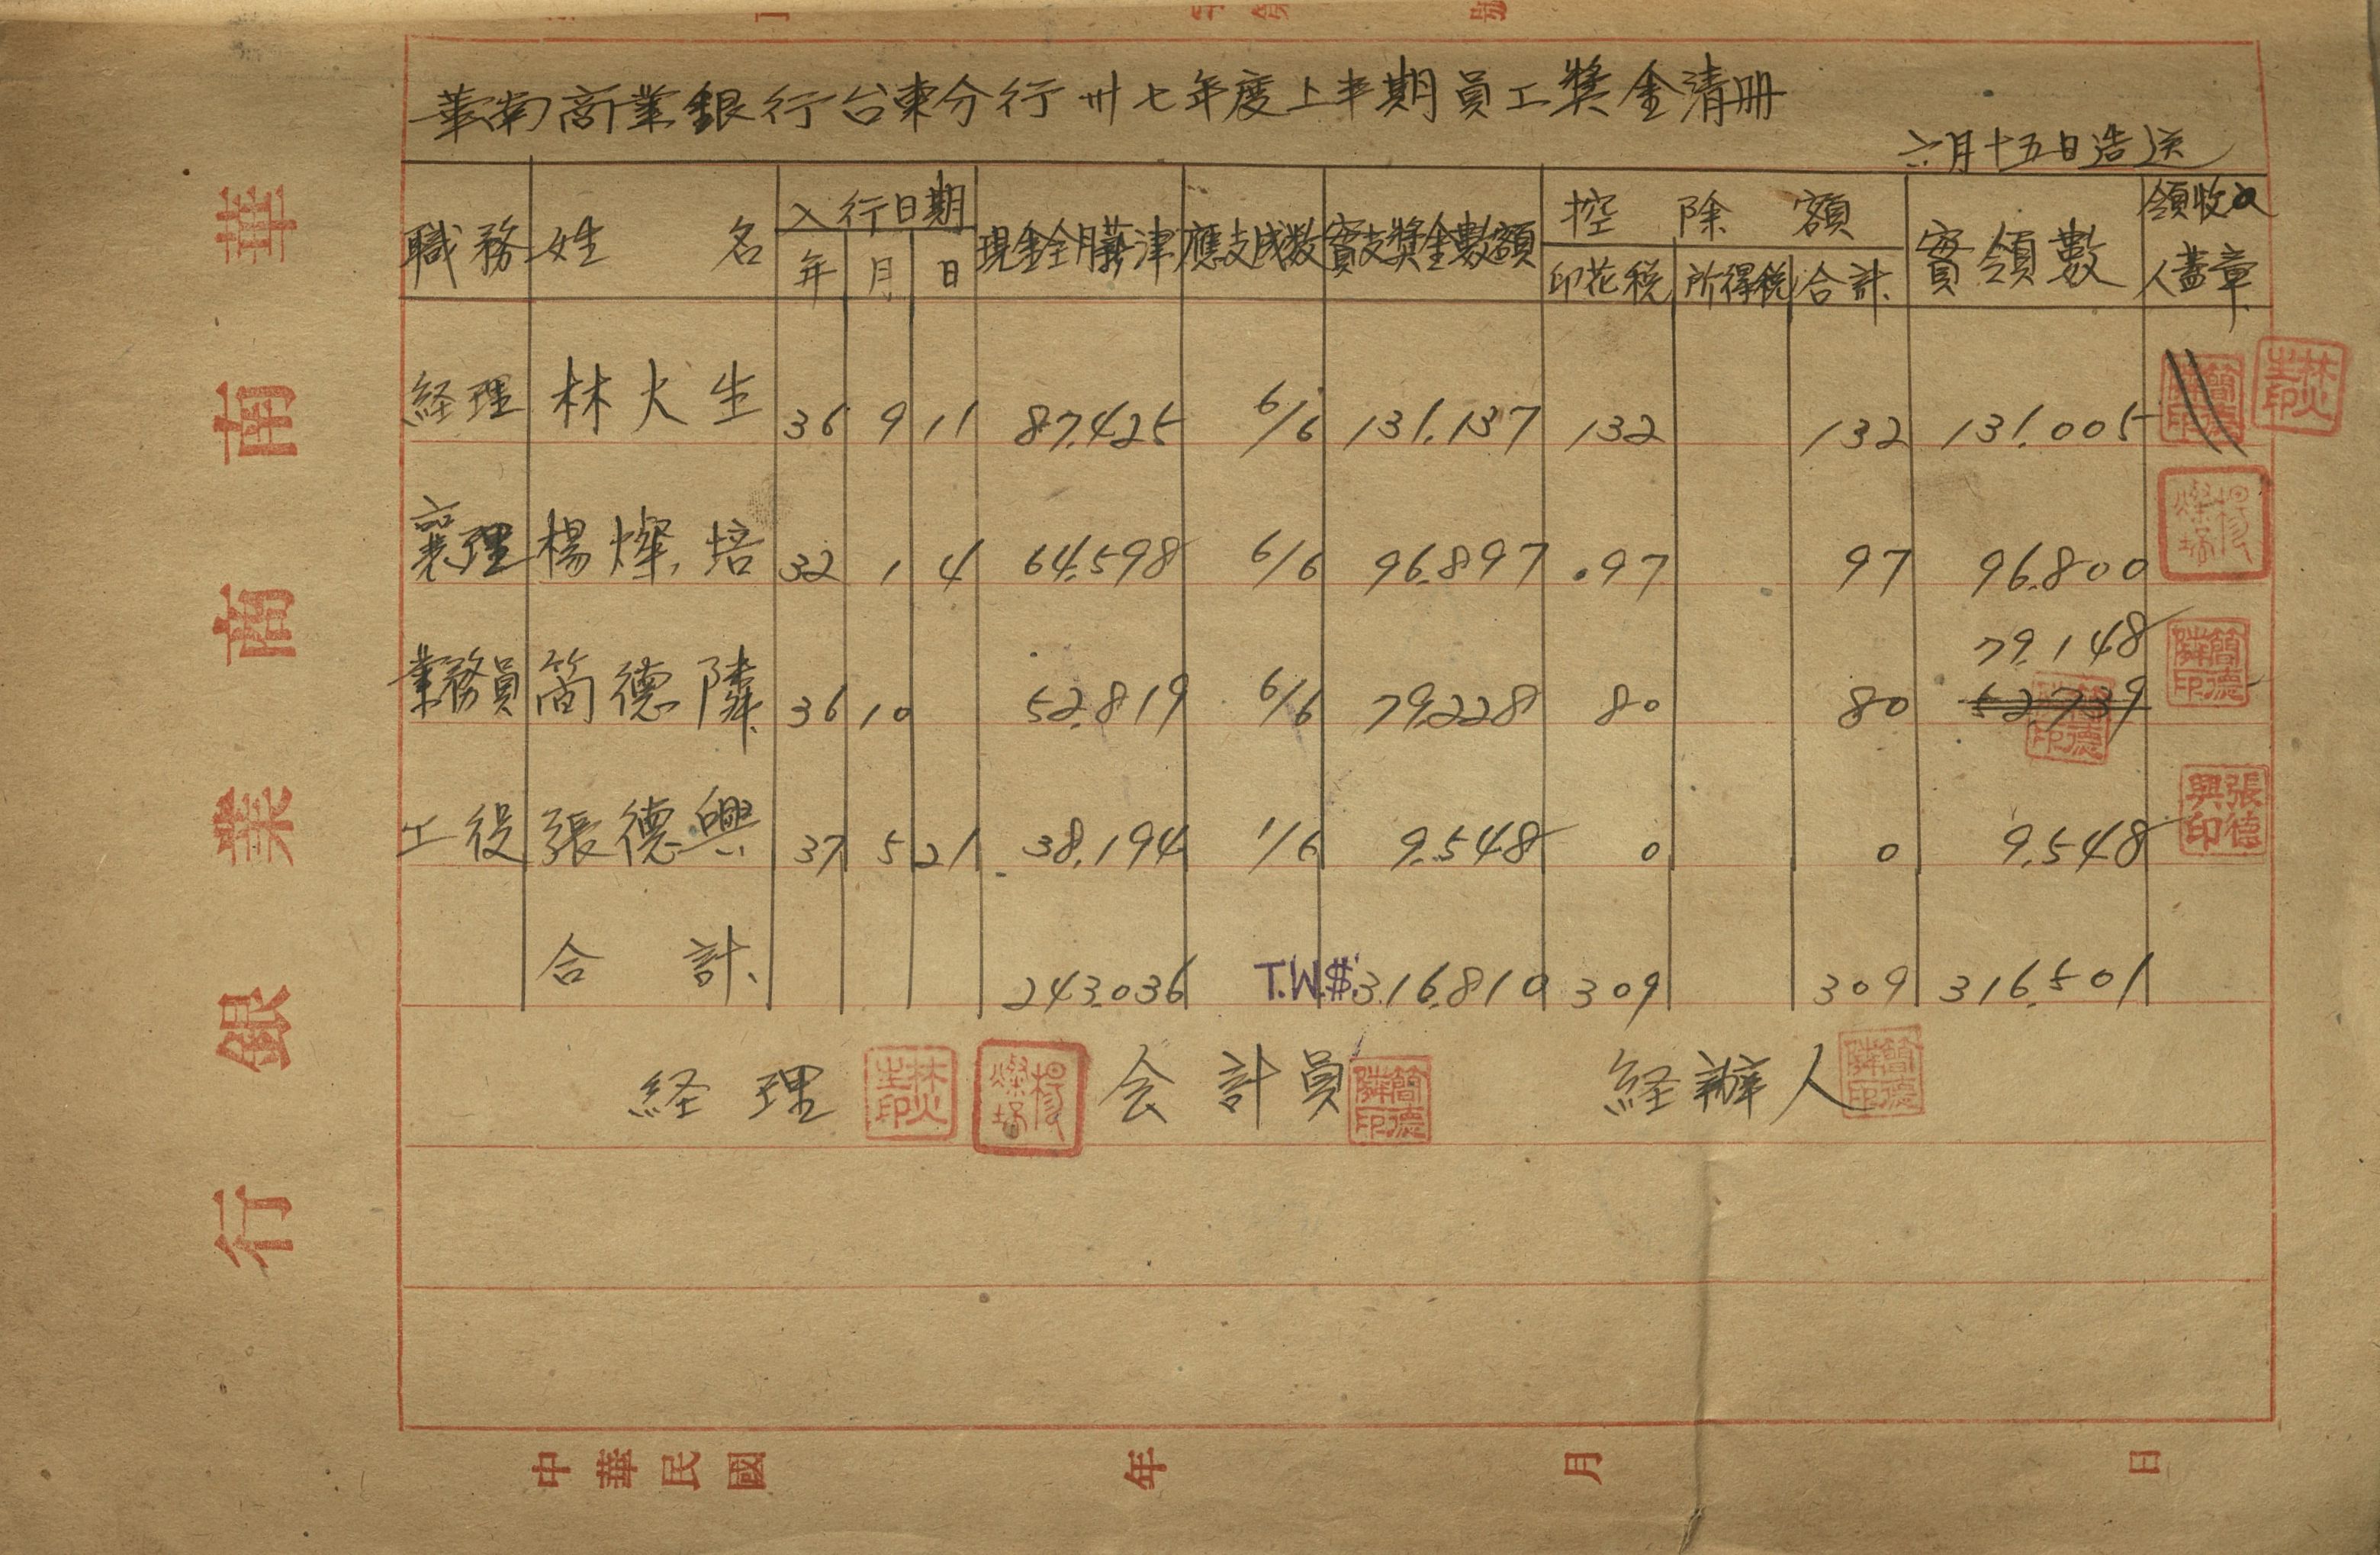 華南商業銀行台東分行卅七年度上半期員工獎金清册
六月十五日造送
職務 姓名 入行日期 現金全月薪津 應支成数 實支獎金數額 控除額 實領數 領收
年 月 日 印花稅 所得稅 合計 人蓋章
経理 林火生 36 9 11 87,425 6/6 131,137 132 132 131,005
襄理 楊燦培 32 1 4 64,598 6/6 96,897 97 97 96,800
79,148
業務員 簡德隣 36 10 52,819 6/6 79,228 80 80 52739
工役 張德興 37 5 21 38,194 1/6 9,548 0 0 9,548
合計 243,036 T.W.$ 316,810 309 309 316,501
経理 会計員 経辦人
林火生印
楊燦培
簡德隣印
張德興印
華南商業銀行
中華民國 年 月 日